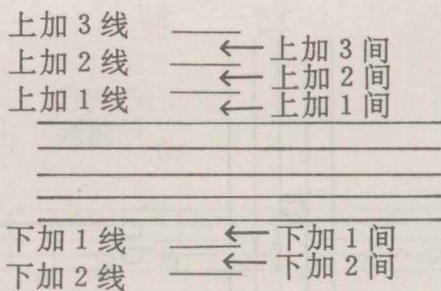 上加3线
上加3间
上加2线
上加2间
上加1线
上加1间
下加1线
下加1间
下加2线
下加2间